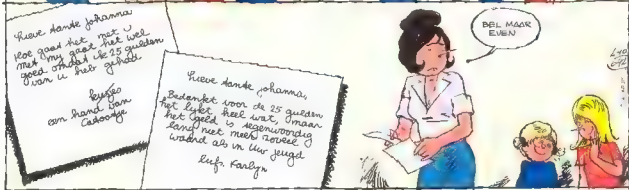 Lieve tante Johanna,
Hoe gaat het met u
met my gaat het wel
goed omdat ik 25 gulden
van u heb gehad
kusjes
een hand van
Cadootje
Lieve tante Johanna,
Bedankt voor de 25 gulden
het lijkt heel wat, maar
het geld is tegenwoordig
lang niet meer zoveel
waard als in Uw jeugd
liefs Karlijn
BEL MAAR
EVEN